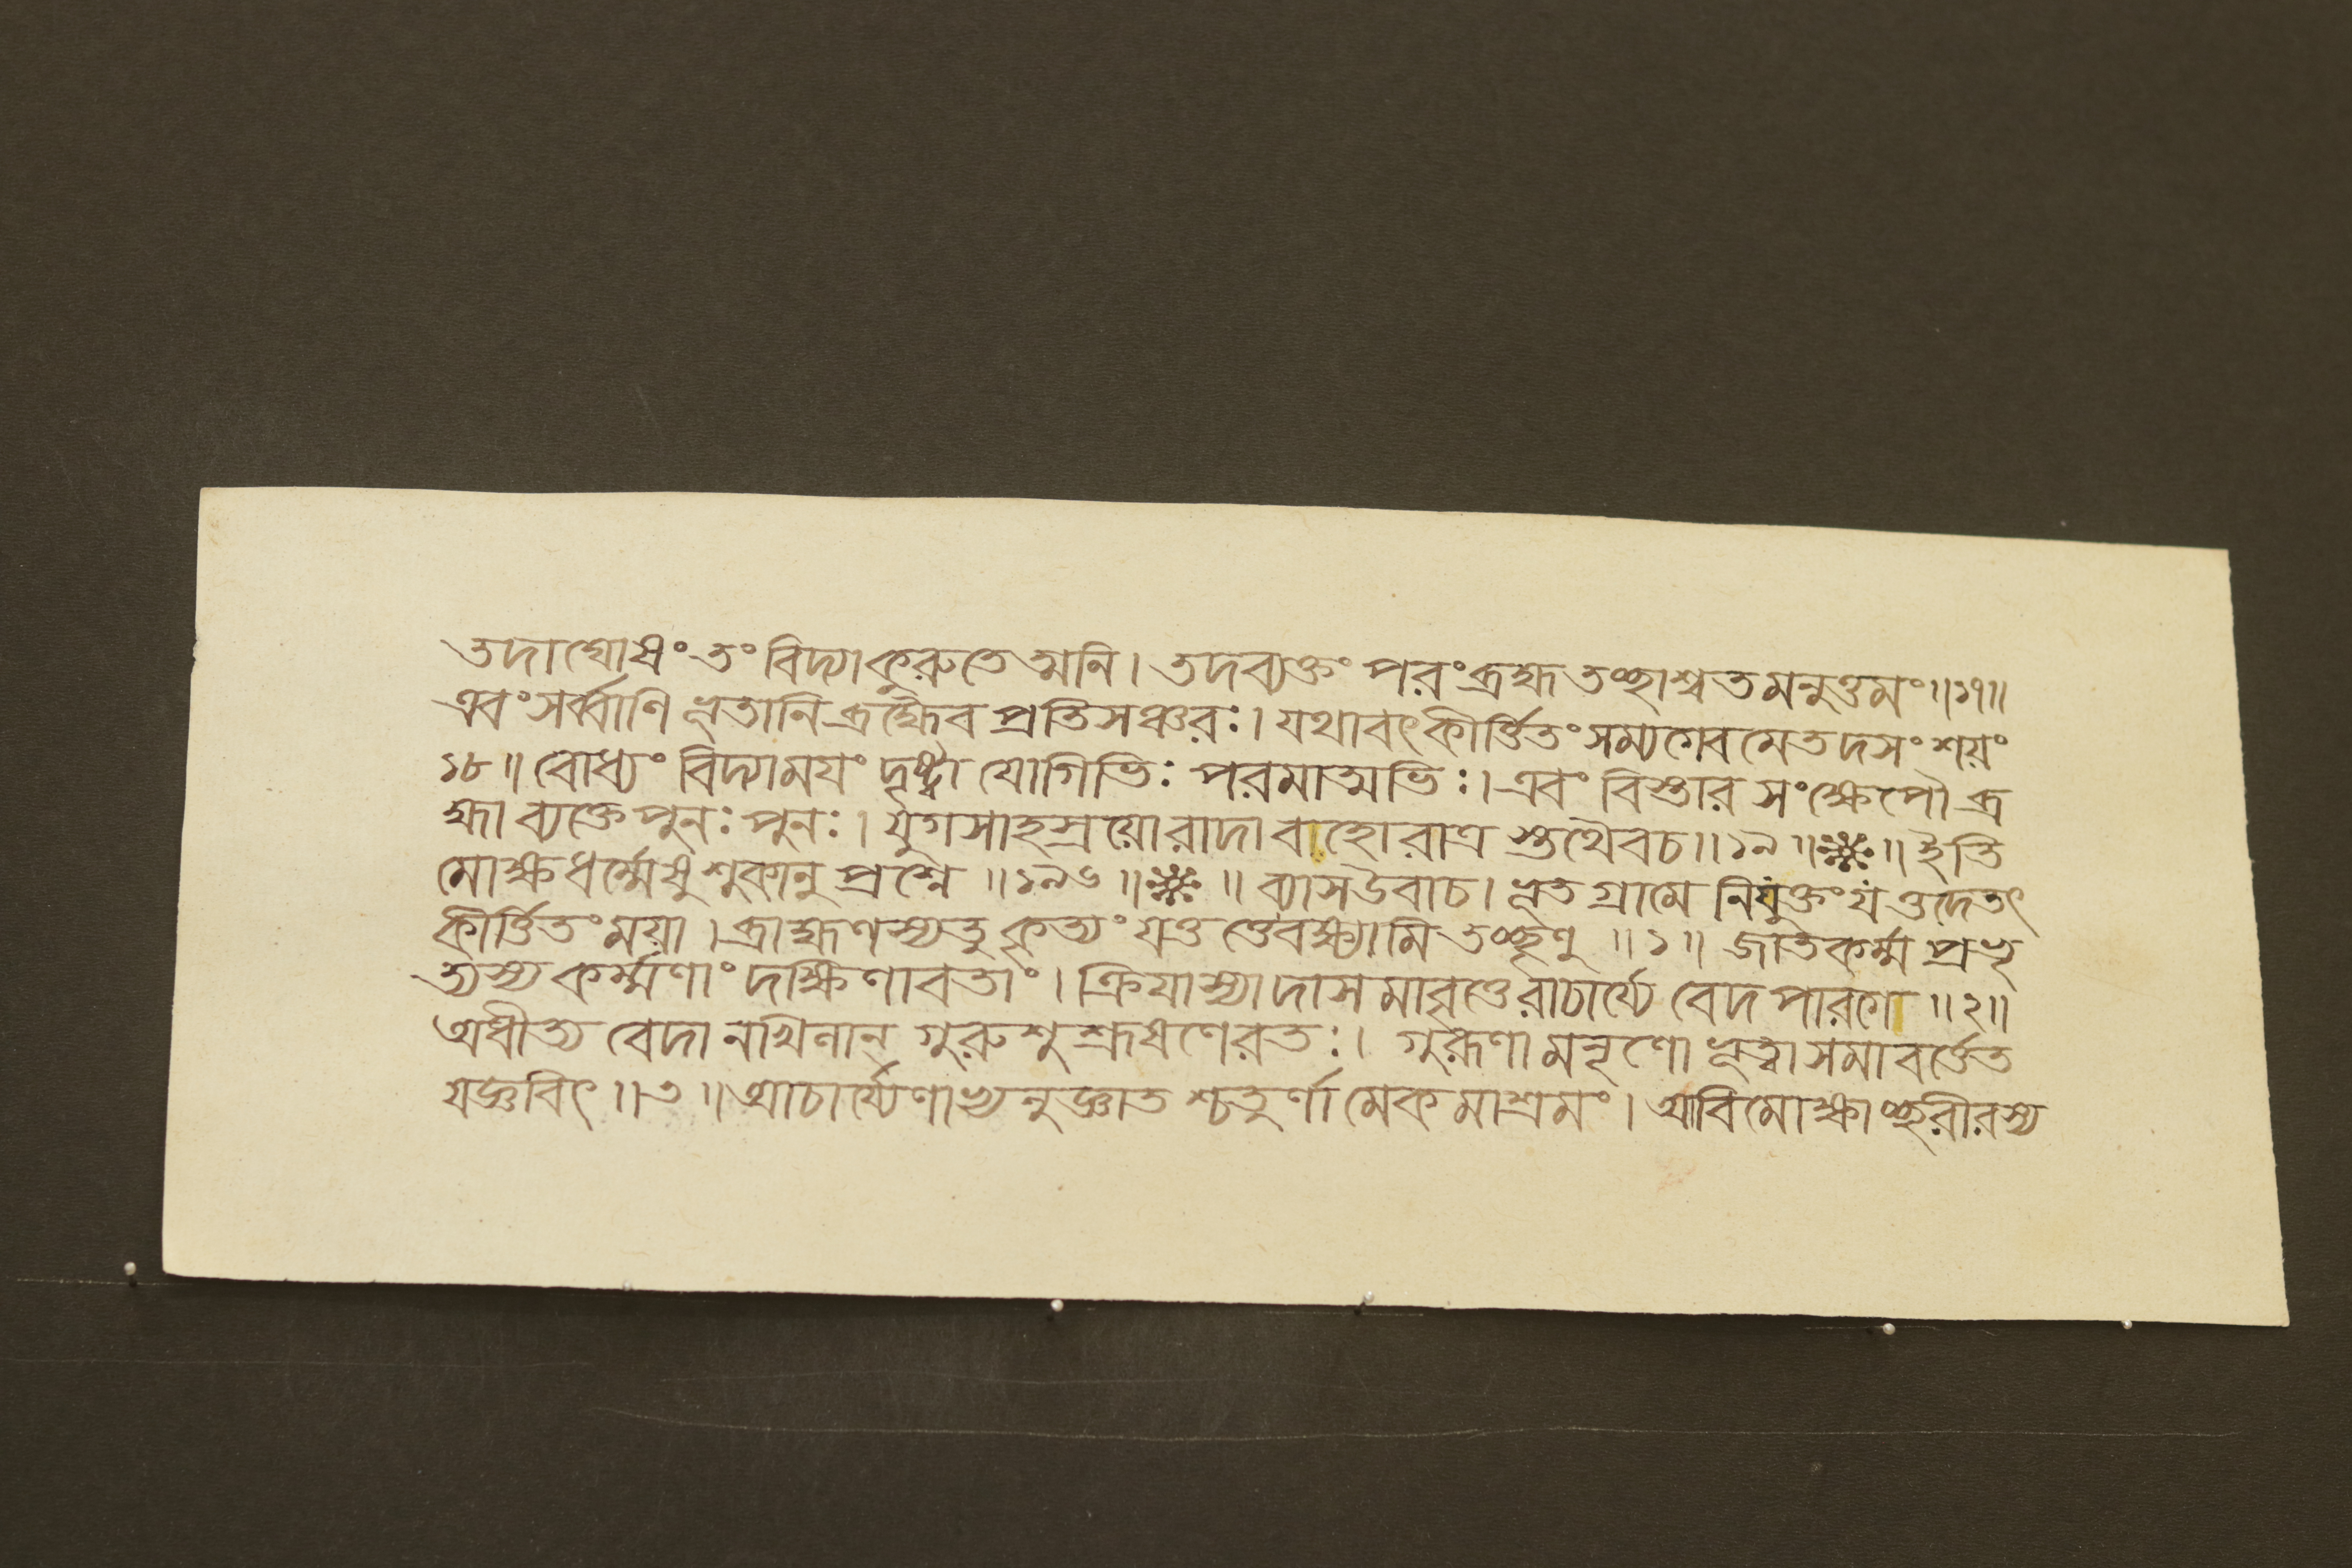 তদাঘোষং তং বিদ্যাকুরুতে ত্মনি। তদব্যক্তং পরংব্রহ্ম তচ্ছাশ্বতমনুত্তমং॥১৭॥
এবং সর্ব্বাণি ভূতানি ব্রহ্মৈব প্রতিসঞ্চরঃ। যথাবৎকীর্ত্তিতং সম্যগেবমেতদসংশয়ং
১৮॥ বোধ্যং বিদ্যাময়ং দৃষ্ট্বা যোগিভিঃ পরমাত্মভিঃ। এবং বিস্তার সংক্ষেপৌ ব্র
হ্মাব্যক্তে পুনঃ পুনঃ। যুগসাহস্রয়োরাদাবাহোরাত্র স্তুথৈবচ॥১৯॥❋॥ ইতি
মোক্ষধর্ম্মেষু শুকানু প্রশ্নে ॥১৯৬॥❋॥ ব্যাসউবাচ। ভূতগ্রামে নিযুক্তং যত্তদেতৎ
কীর্ত্তিতং ময়া। ব্রাহ্মণস্যতু কৃত্যং যত্ত ত্তেবক্ষ্যামি তচ্ছৃণু ॥১॥ জাতকর্ম্ম প্রভৃ
ত্যস্য কর্ম্মণাং দক্ষিণাবতাং। ক্রিয়াস্যাদাসমাবৃত্তেরাচার্য্যে বেদপারগে ॥২॥
অধীত্য বেদানখিলান্ গুরুশুশ্রূষণেরতঃ। গুরূণামনৃণো ভূত্বা সমাবর্ত্তেত
যজ্ঞবিৎ ॥৩॥ আচার্য্যেণাভ্যনুজ্ঞাত শ্চতুর্ণামেকমাশ্রমং। আবিমোক্ষাচ্ছরীরস্য